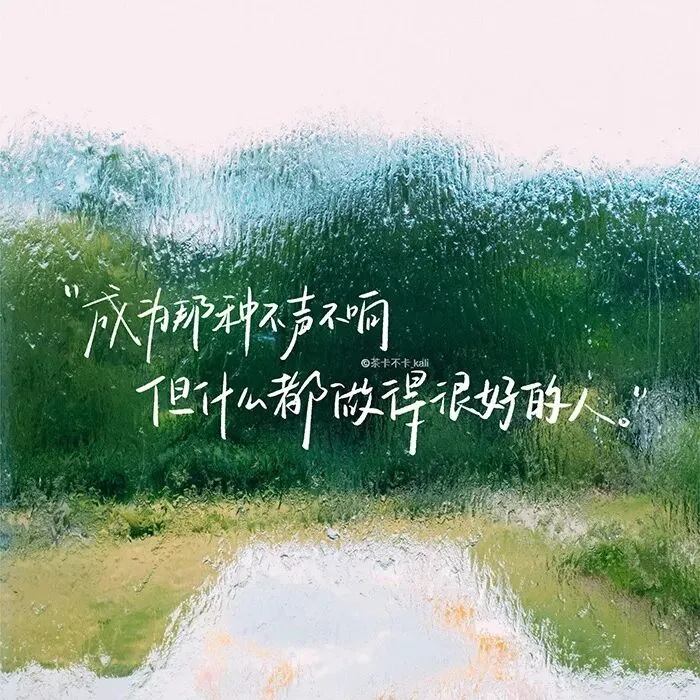 “成为那种不声不响
@茶卡不卡_kali
但什么都做得很好的人。”